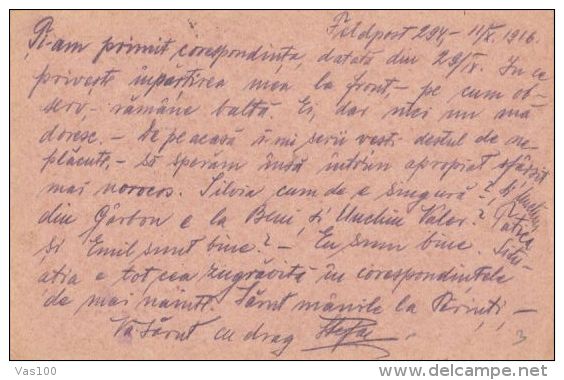 Feldpost 294,- 11/X. 1916.
Ți-am primit corespondința, datată din 29/IX. In ce
privește împărțirea mea la front, - pe cum ob-
serv - rămâne baltă. Ei, dar nici nu mă
doresc. - De pe acasă îi-mi scrii vesti destul de ne-
plăcute, - să sperăm însă întrun apropiat sfârșit
mai norocos. Silvia cum de e singură -?
din Gârbou e la Beiu, și Unchiu Valer?
și Emil sunt bine? - Eu sunt bine. Situ-
atia e tot cea zugrăvită în corespondintele
de mai naintt. Sărut mânile la Părinți, -
Vă sărut cu drag
3
Vas100
delcampe.net